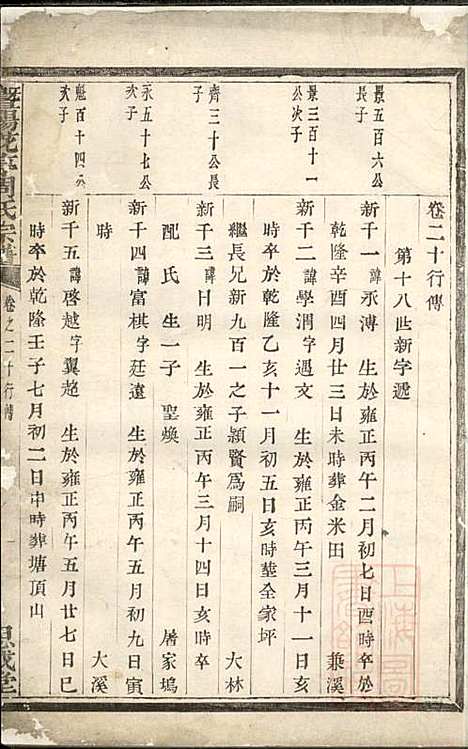 卷二十行傳
第十八世新字遞
景五百六公長子
新千一諱承溥 生於雍正丙午二月初七日酉時卒於乾隆辛酉四月廿三日未時葬金米田 兼溪
景三百十一公次子
新千二諱學渭字遇文 生於雍正丙午三月十一日亥時卒於乾隆乙亥十一月初五日亥時葬全家坪
繼長兄新九百一之子頴賢爲嗣 大林
齊三十公長子
新千三諱日明 生於雍正丙午三月十四日亥時卒
配氏 生一子 聖煥 屠家塢
永五十七公次子
新千四諱富棋字廷遠 生於雍正丙午五月初九日寅時 大溪
魁百十四公次子
新千五諱啓越字翼超 生於雍正丙午五月廿七日巳時卒於乾隆壬子七月初二日申時葬塘頂山
周氏宗譜
卷之二十行傳
思成堂
上海圖